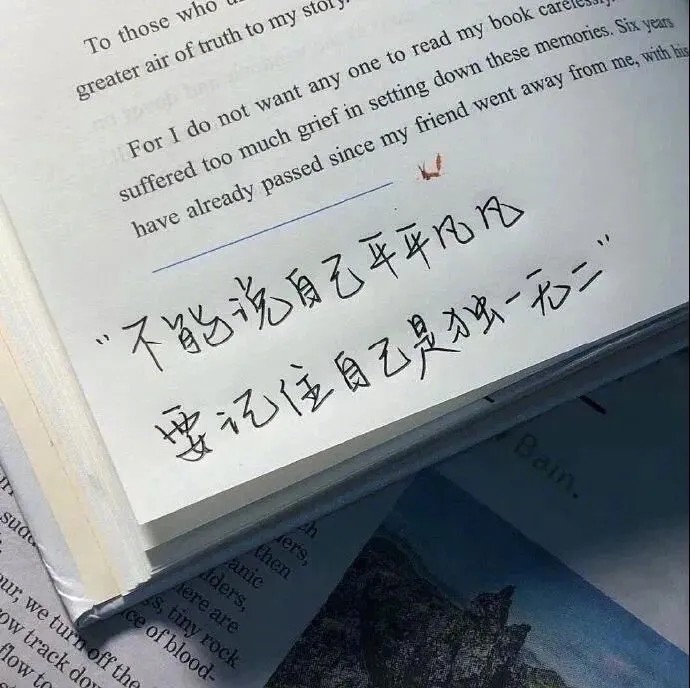 To those who
greater air of truth to my story.
For I do not want any one to read my book carelessly.
suffered too much grief in setting down these memories. Six years
have already passed since my friend went away from me, with his
“不能说自己平平凡凡
要记住自己是独一无二”
Bain.
then
anic
ders,
ere are
s, tiny rock
ce of blood-
our, we turn off the
ow track down
flow to